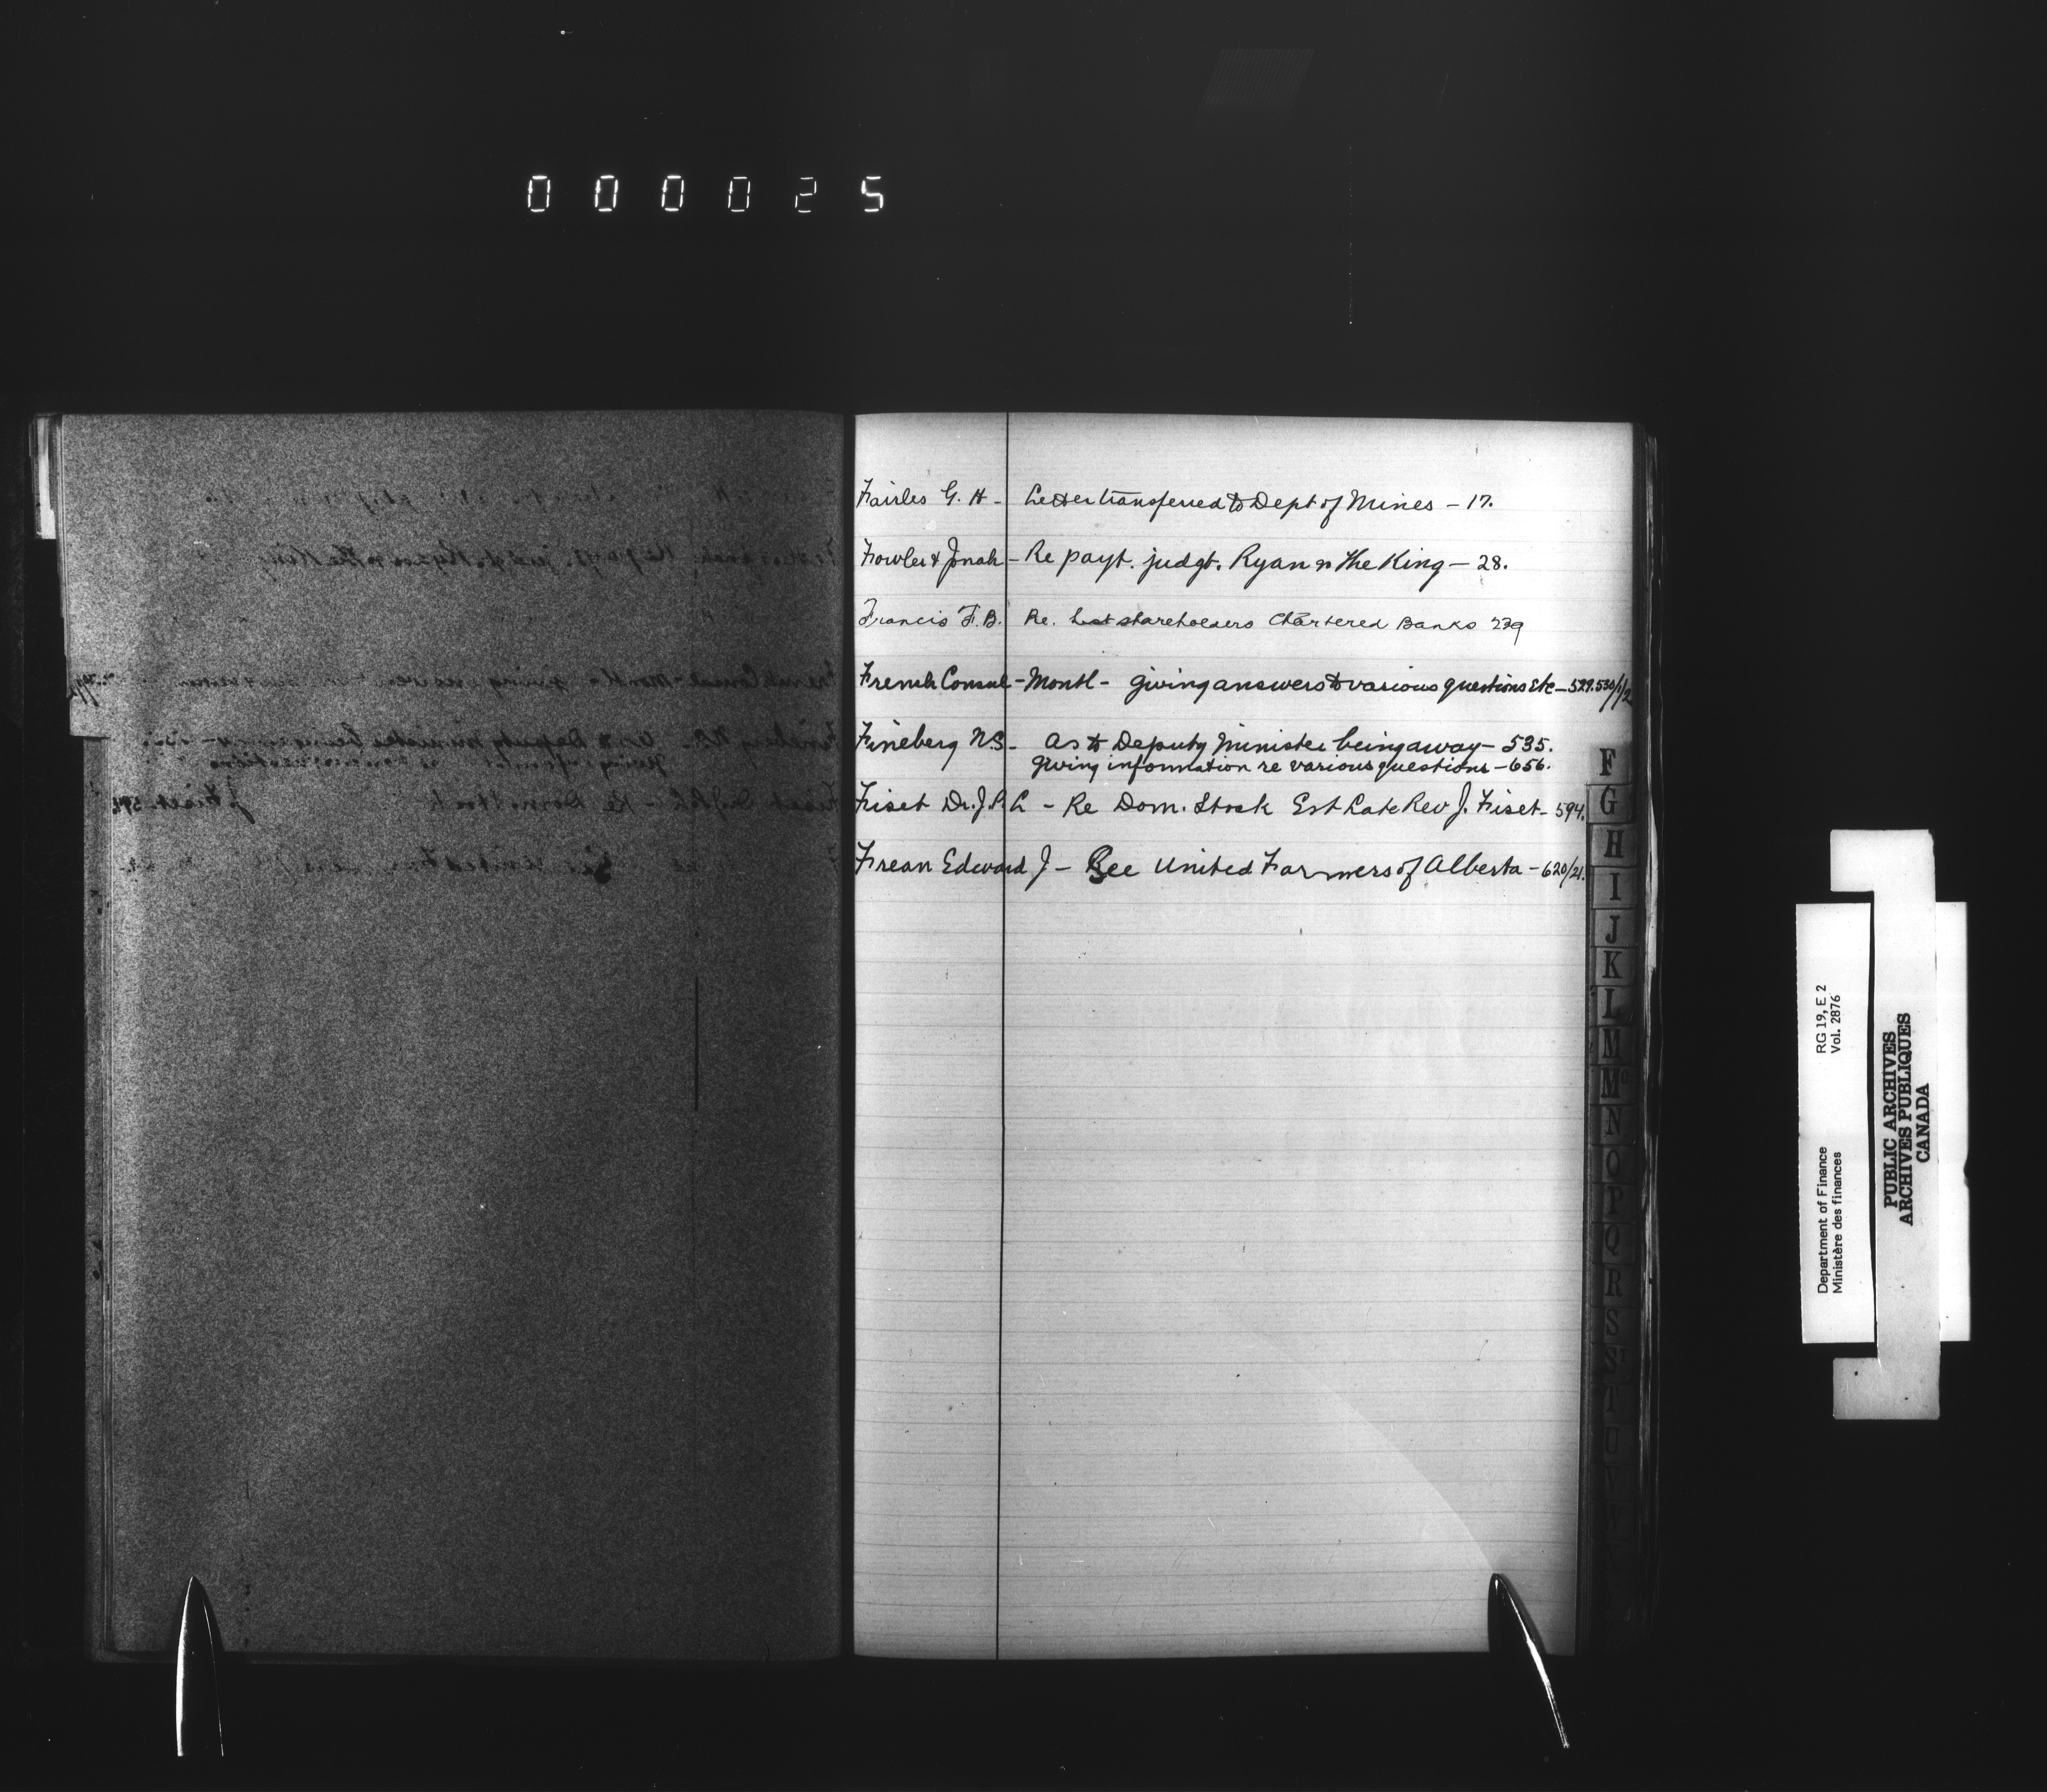 000025
Fairles G. H - Letter transferred to Dept of Mines - 17.
Fowler & Jonah - Re payt. judgt. Ryan vs The King - 28.
Francis F. B. Re. List shareholders Chartered Banks 239
French Consul - Montl - giving answers to various questions etc - 529.530/1/2
Fineberg N.S. - As to Deputy Minister being away - 535.
giving information re various questions - 656.
Fiset Dr. J. P. L - Re Dom. Stock Est Late Rev J. Fiset - 594.
Fream Edward J - See United Farmers of Alberta - 620/21.
F
G
H
I
J
K
L
M
Mc
N
O
P
Q
R
S
T
U
V
RG 19, E 2
Vol. 2876
Department of Finance
Ministère des finances
PUBLIC ARCHIVES
ARCHIVES PUBLIQUES
CANADA